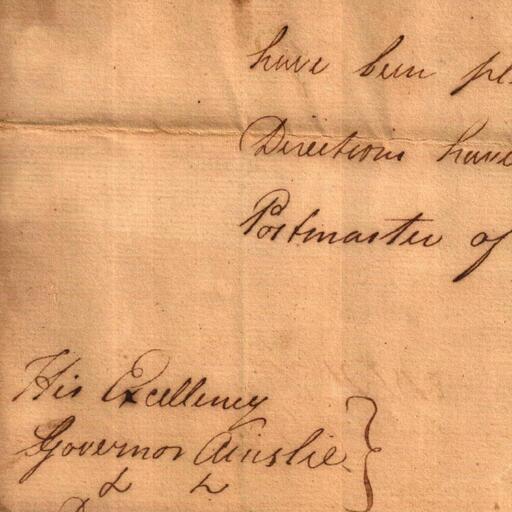 have been
Directions have
Postmaster of
His Excellency
Governor Ainslie